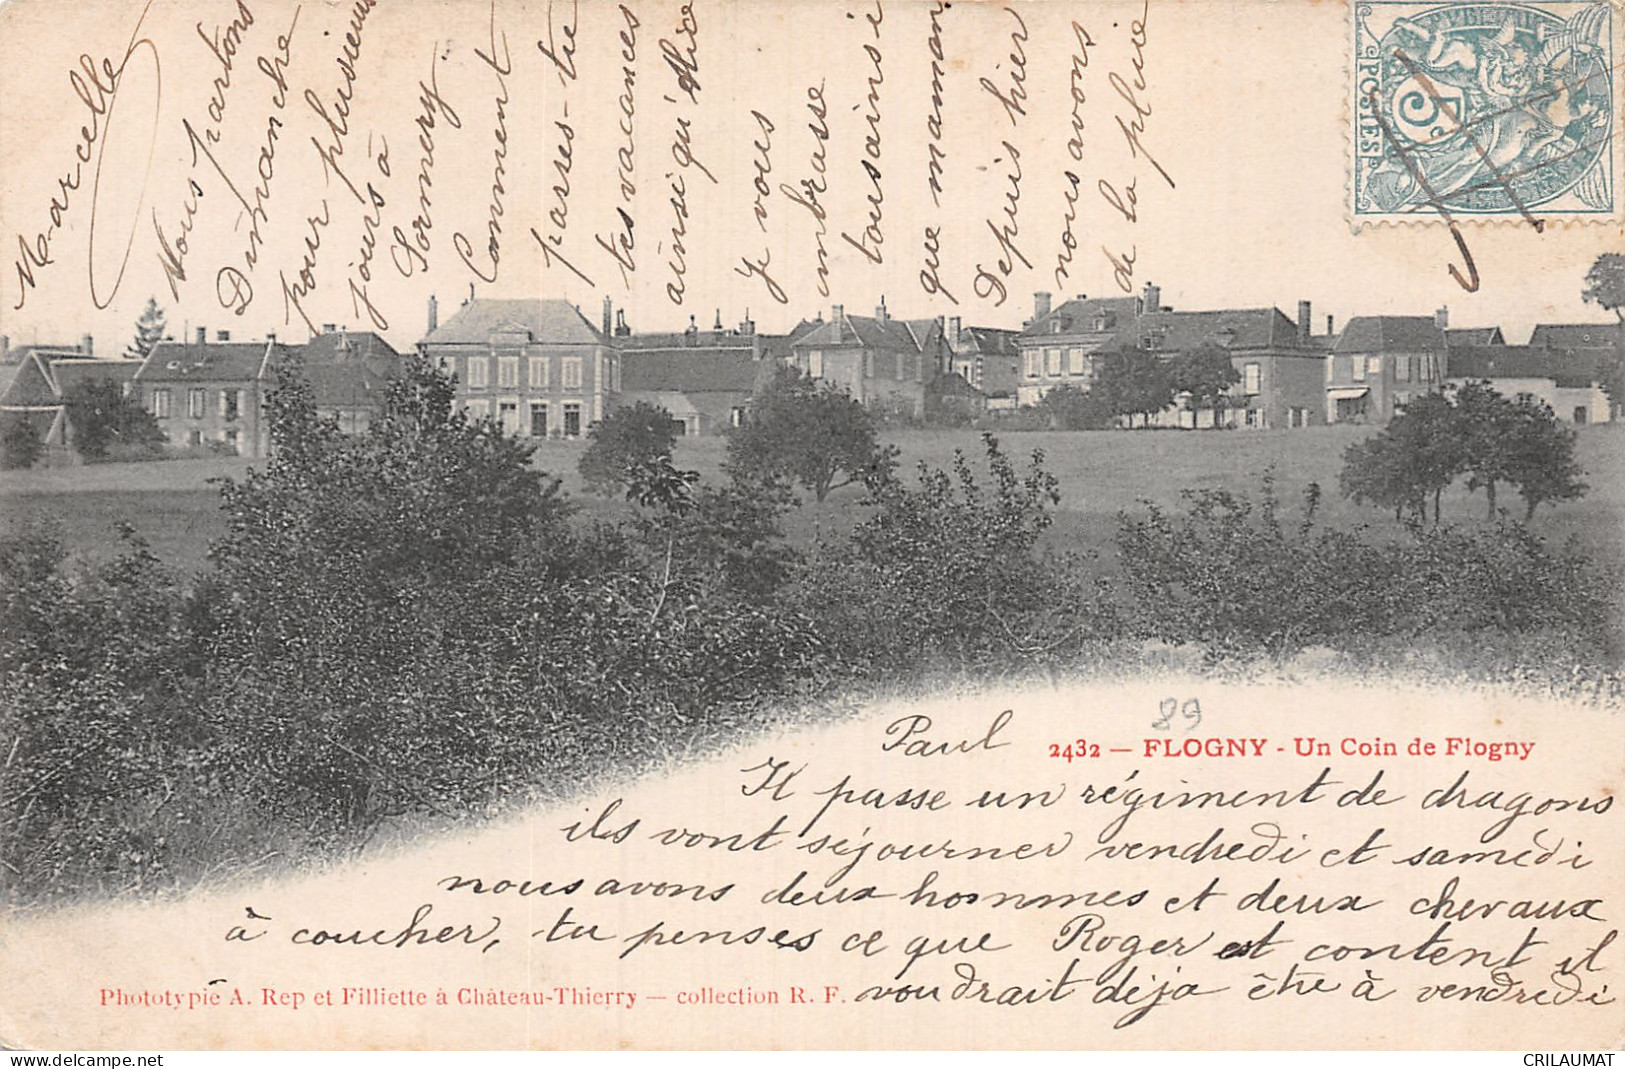 Marcelle
Nous partons
Dimanche
pour plusieurs
jours à
Sormery.
Comment
passes-tu
tes vacances
ainsi qu'Alice
je vous
embrasse
tous ainsi
que maman
Depuis hier
nous avons
de la pluie
POSTES
5c
89
Paul
2432 — FLOGNY - Un Coin de Flogny
Il passe un régiment de dragons
ils vont séjourner vendredi et samedi
nous avons deux hommes et deux chevaux
à coucher, tu penses ce que Roger est content il
voudrait déja être à vendredi
Phototypie A. Rep et Filliette à Château-Thierry — collection R. F.
www.delcampe.net
CRILAUMAT